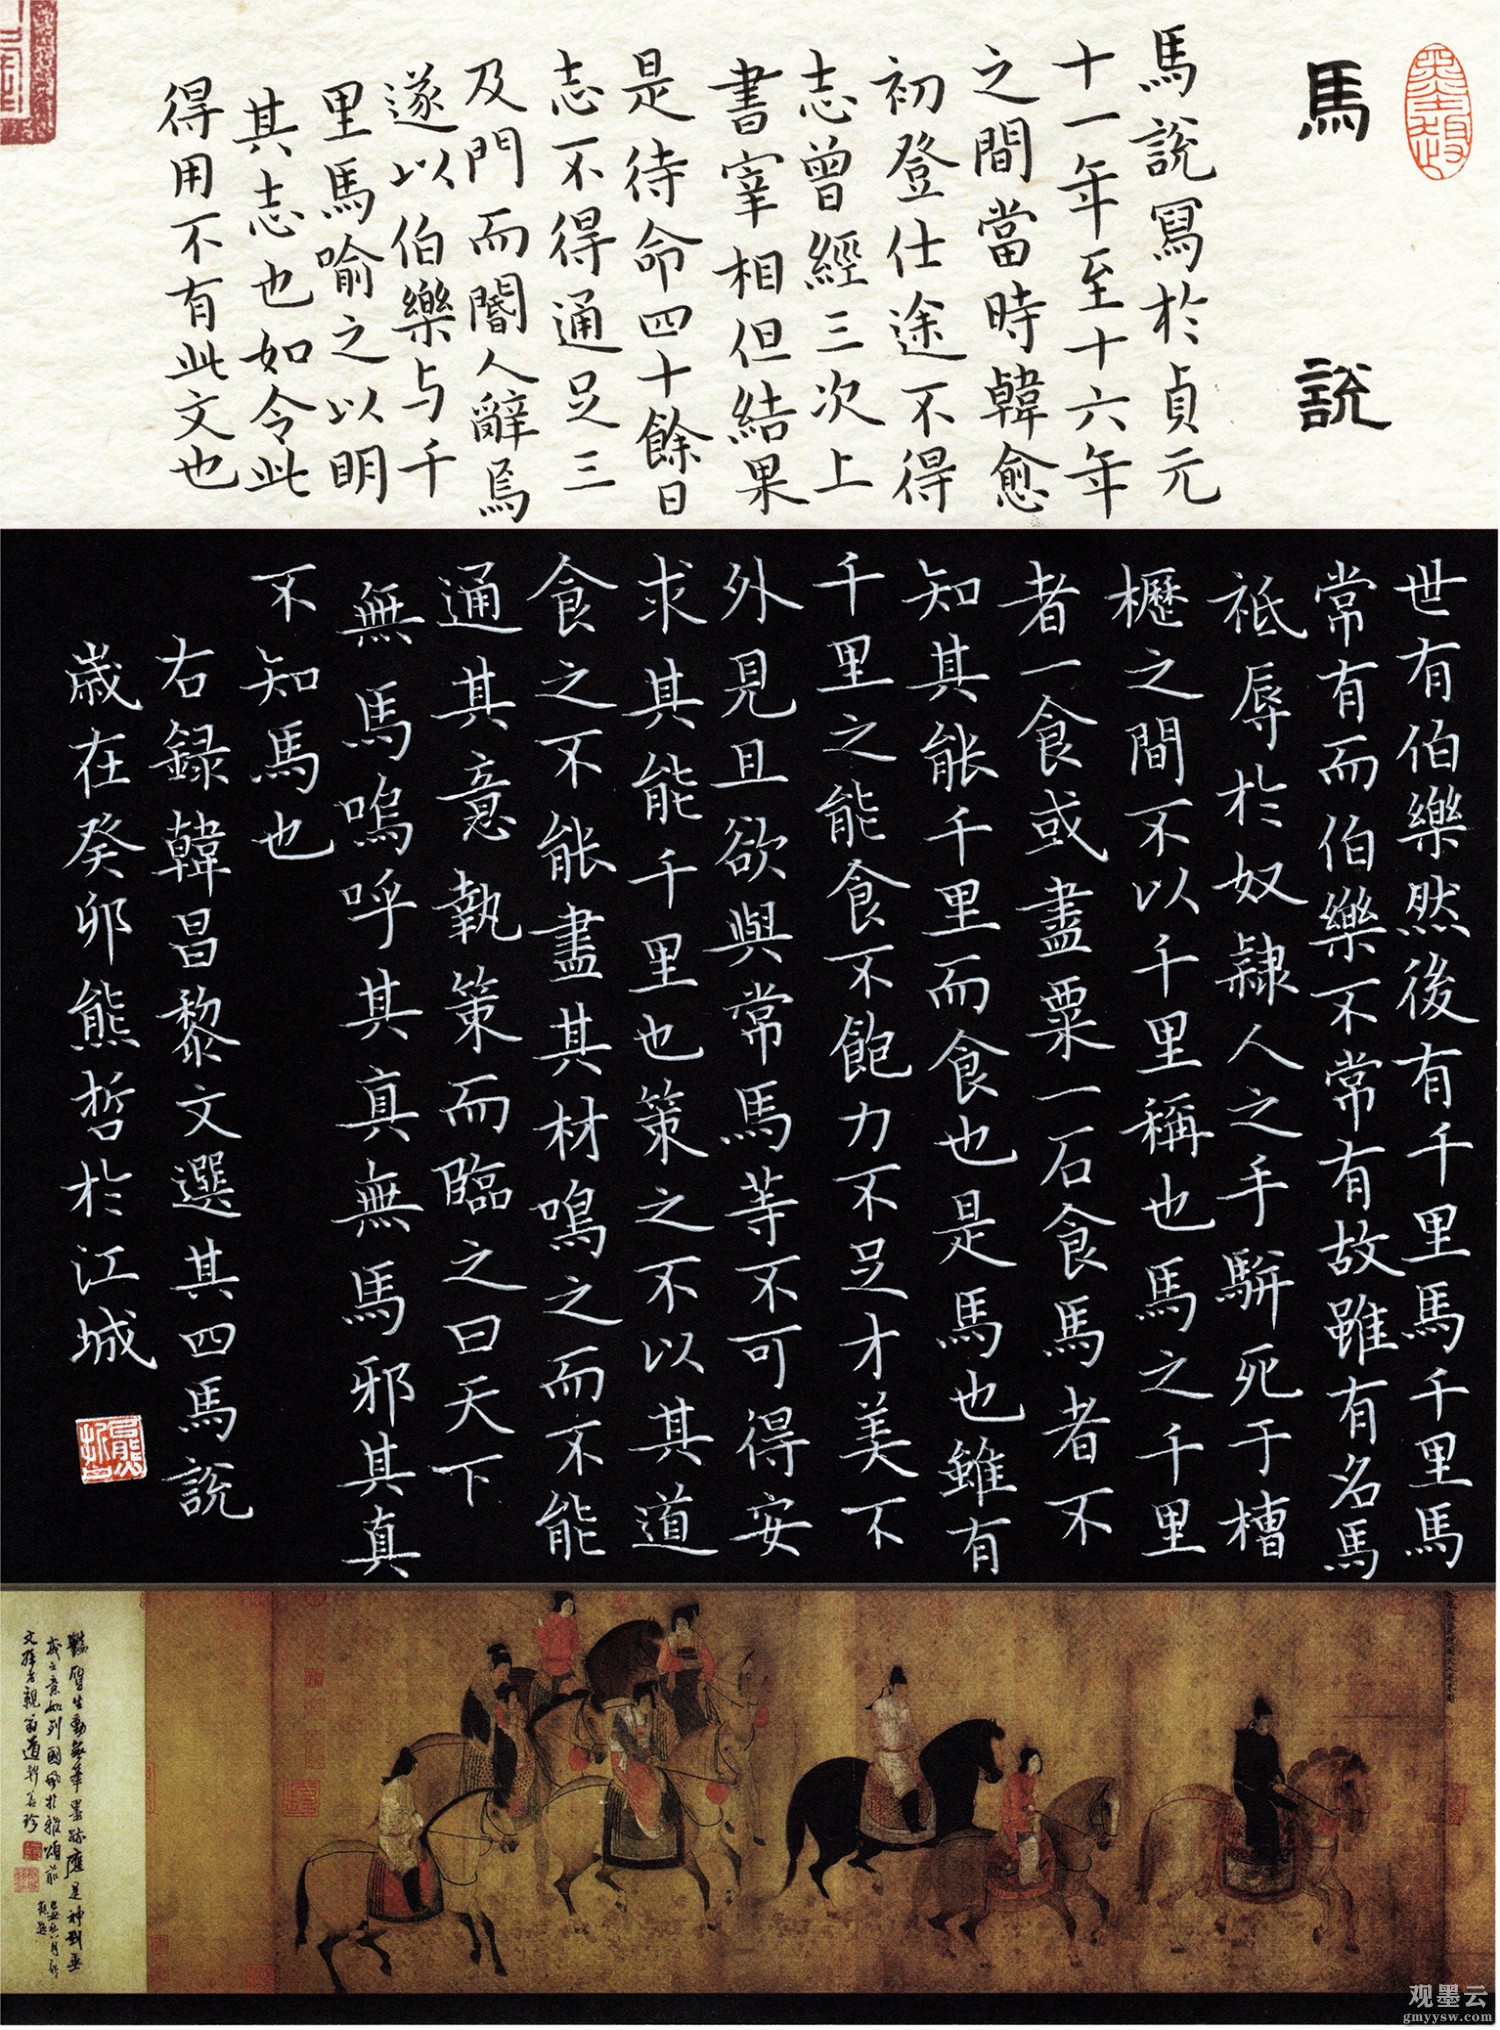 馬說
馬說冩於貞元
十一年至十六年
之間當時韓愈
初登仕途不得
志曾經三次上
書宰相但結果
是待命四十餘日
志不得通足三
及門而閽人辭焉
遂以伯樂与千
里馬喻之以明
其志也如令此
得用不有此文也
世有伯樂然後有千里馬千里馬
常有而伯樂不常有故雖有名馬
祗辱於奴隸人之手駢死于槽
櫪之間不以千里稱也馬之千里
者一食或盡粟一石食馬者不
知其能千里而食也是馬也雖有
千里之能食不飽力不足才美不
外見且欲與常馬等不可得安
求其能千里也策之不以其道
食之不能盡其材鳴之而不能
通其意執策而臨之曰天下
無馬嗚呼其真無馬邪其真
不知馬也
右録韓昌黎文選其四馬說
歲在癸卯熊哲於江城
观墨云
gmyysw.com